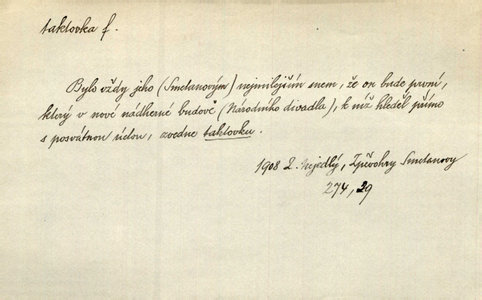 taktovka f.
Bylo vždy jeho (Smetanovým) nejmilejším snem, že on bude první,
který v nové nádherné budově (Národního divadla), k níž hleděl přímo
s posvátnou úctou, zvedne taktovku.
1908 Z. Nejedlý, Zpěvohry Smetanovy
274, 29